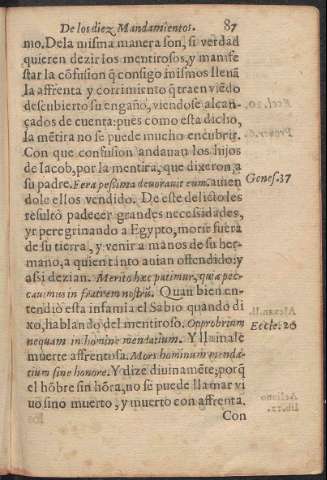 De los diez Mandamientos. 87
mo. De la misma manera son, si verdad
quieren dezir los mentirosos, y manife
star la cõfusion q̃ consigo mismos llenã
la affrenta y corrimiento q̃ traen viẽdo
descubierto su engaño, viendose alcan-
çados de cuenta: pues como esta dicho,
la mẽtira no se puede mucho encubrir.
Con que confusion andauan los hijos
de Iacob, por la mentira, que dixeron a
su padre. Fera pessima deuorauit eum. auien Genes. 37
dole ellos vendido. De este delicto les
resultò padecer grandes necessidades,
yr peregrinando a Egypto, morir fuera
de su tierra, y venir a manos de su her-
mano, a quien tanto auian offendido: y
assi dezian. Merito hæc patimur, quia pec-
cauimus in fratrem nostrũ. Quan bien en-
tendio esta infamia el Sabio quando di
xo, hablando del mentiroso. Opprobrium Eccle. 20
nequam in homine mendatium. Y llamale
muerte affrentosa. Mors hominum menda-
tium sine honore. Y dize diuinamẽte; porq̃
el hõbre sin hõra, no se puede llamar vi
uo sino muerto, y muerto con affrenta.
Con